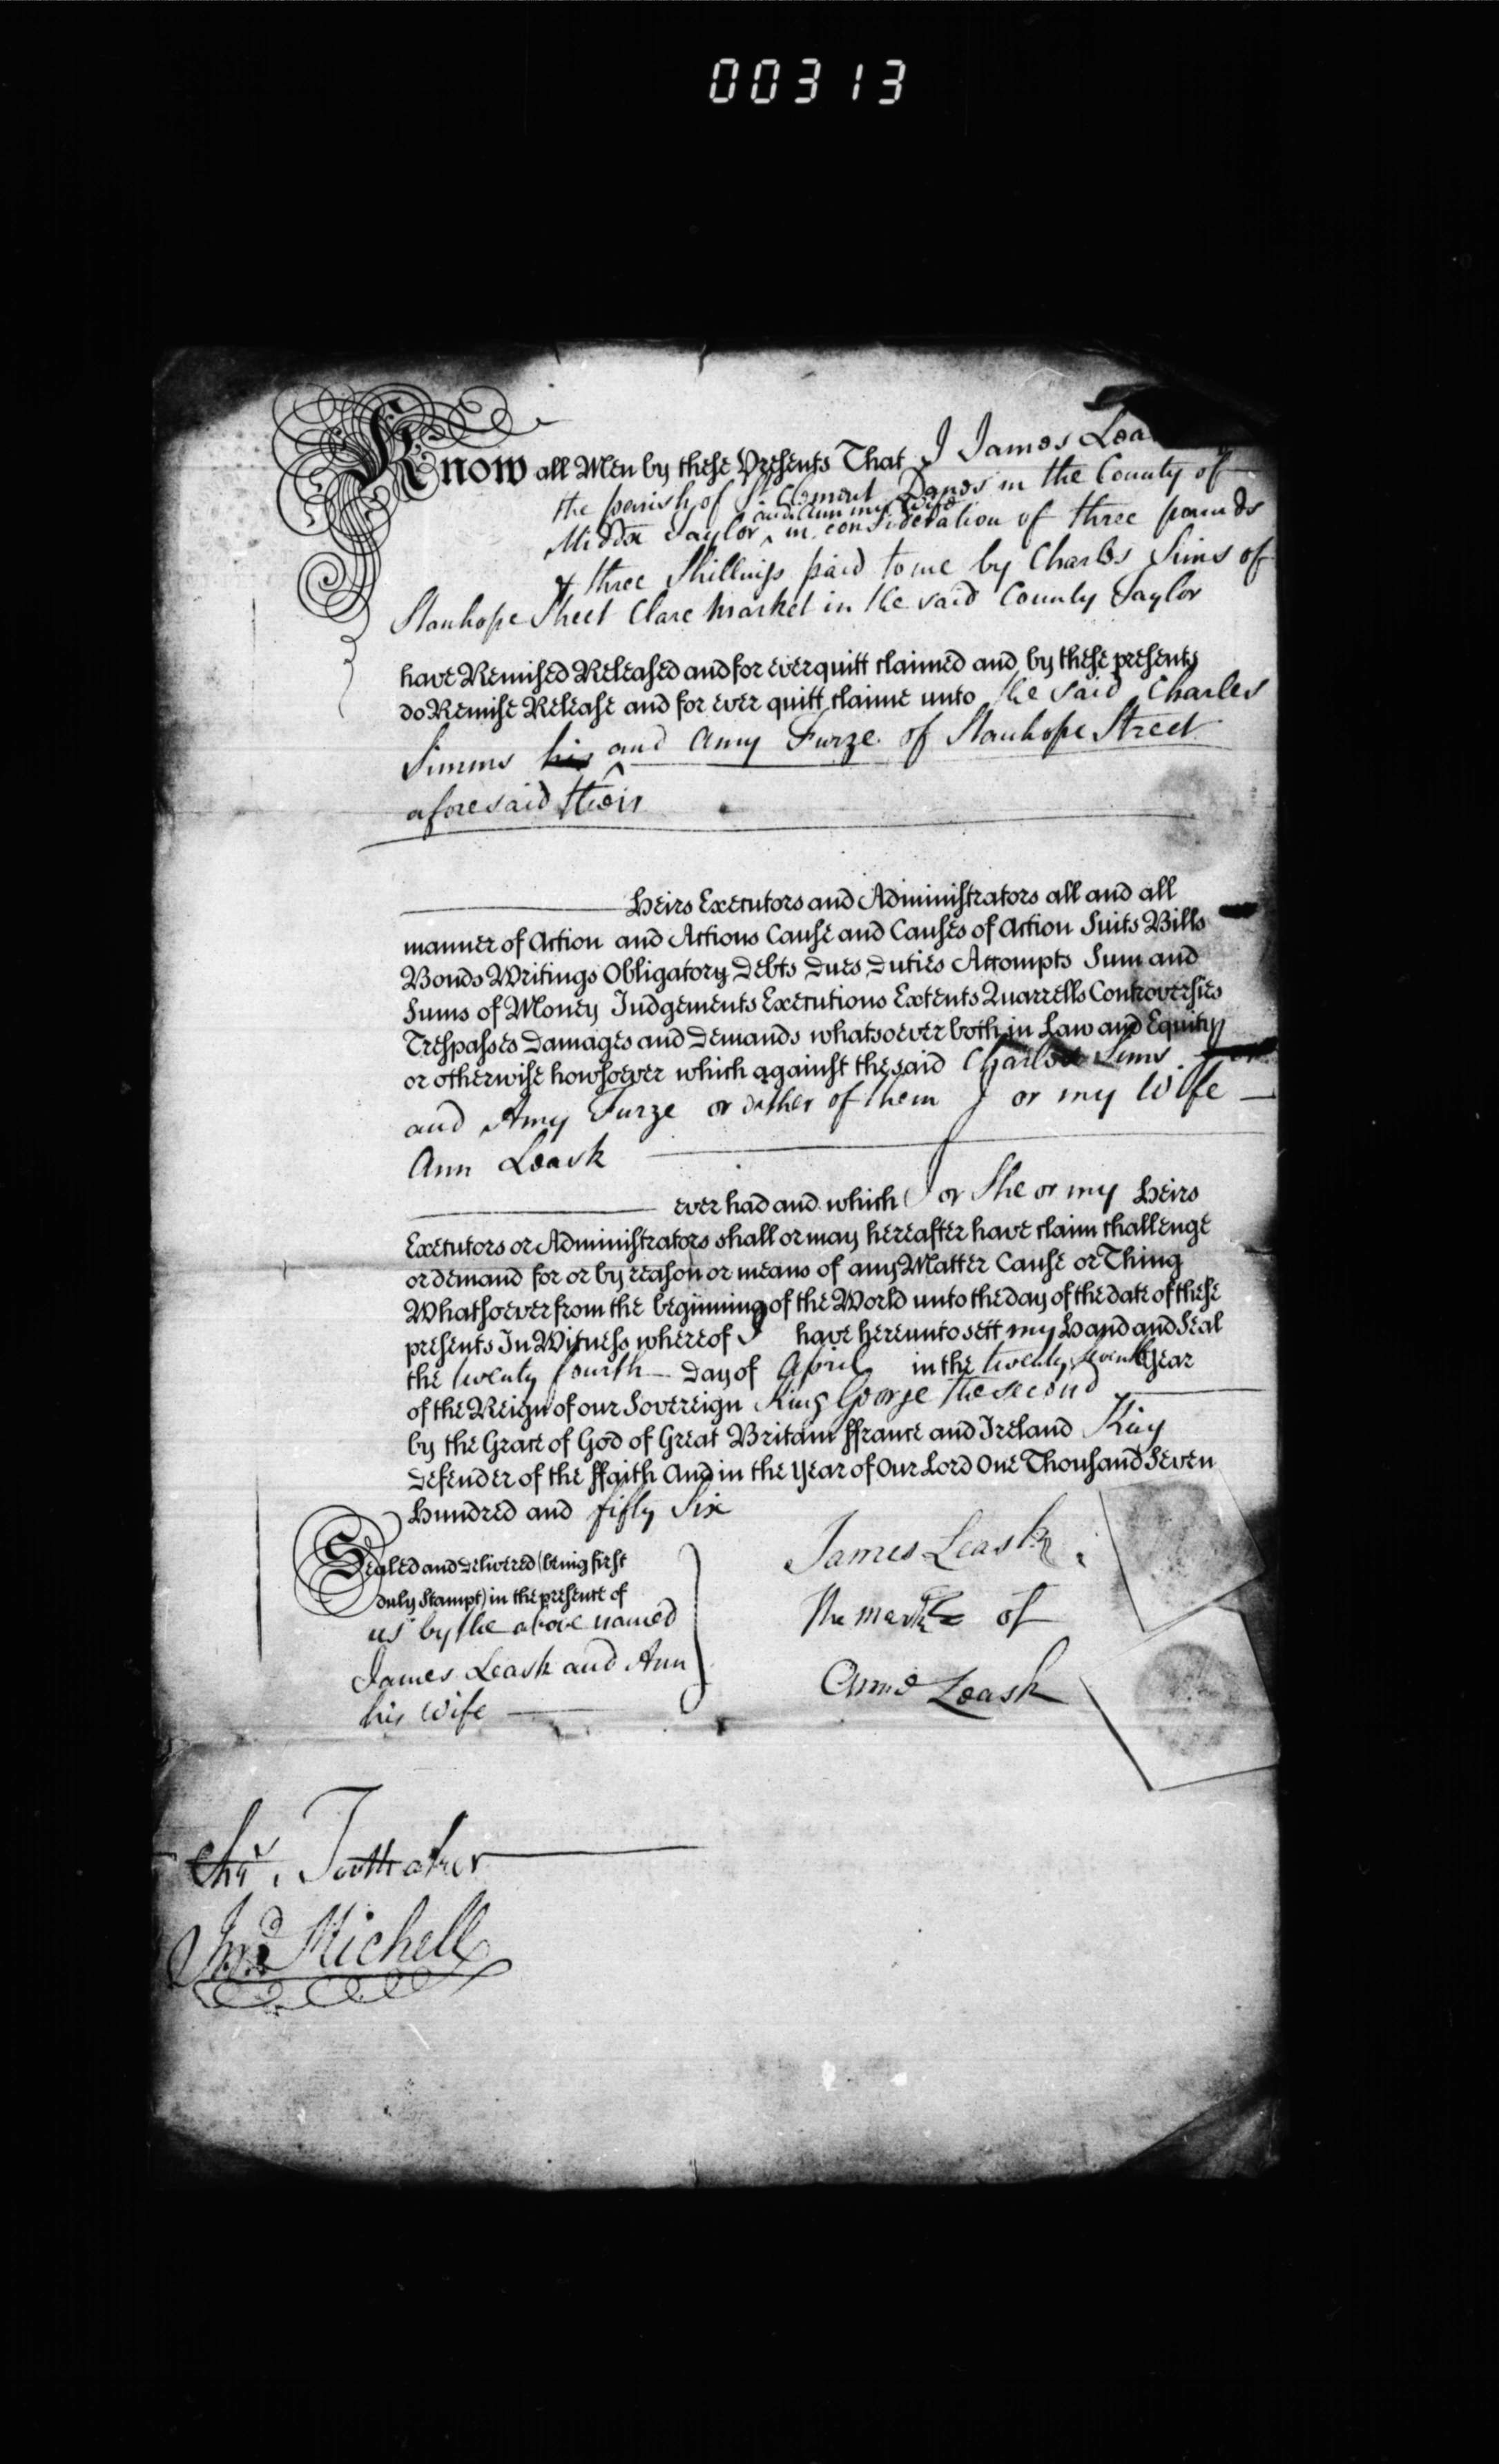 00313
Know all Men by these Presents That I James Lea
the parish of St Clement Danes in the County of
and Ann my Wife
Middx Taylor ^ in consideration of three pounds
& three Shillings paid to me by Charles Sims of
Stanhope Street Clare Market in the said County Taylor
have Remised Released and for ever quitt claimed and by these presents
do Remise Release and for ever quitt claime unto the said Charles
Simms his ^ and Amy Furze of Stanhope Street
aforesaid their
Heirs Executors and Administrators all and all
manner of Action and Actions Cause and Causes of Action Suits Bills
Bonds Writings Obligatory Debts Dues Duties Accompts Sum and
Sums of Money Judgements Executions Extents Quarrells Controversies
Trespasses Damages and Demands whatsoever both in Law and Equity
or otherwise howsoever which against the said Charles Sims
and Amy Furze or either of them I or my Wife
Ann Leask
ever had and which I or She or my Heirs
Executors or Administrators shall or may hereafter have claim challenge
or demand for or by reason or means of any Matter Cause or Thing
Whatsoever from the beginning of the World unto the day of the date of these
presents In Witness whereof I have hereunto sett my Hand and Seal
the twenty fourth Day of April in the twenty seventh Year
of the Reign of our Sovereign King George the second
by the Grace of God of Great Britain ffrance and Ireland King
Defender of the ffaith And in the Year of Our Lord One Thousand Seven
Hundred and fifty Six
Sealed and Delivered (being first
duly Stampt) in the presence of
us by the above named
James Leask and Ann
his Wife
James Leask
The mark of
Anne Leask
Jno Michell